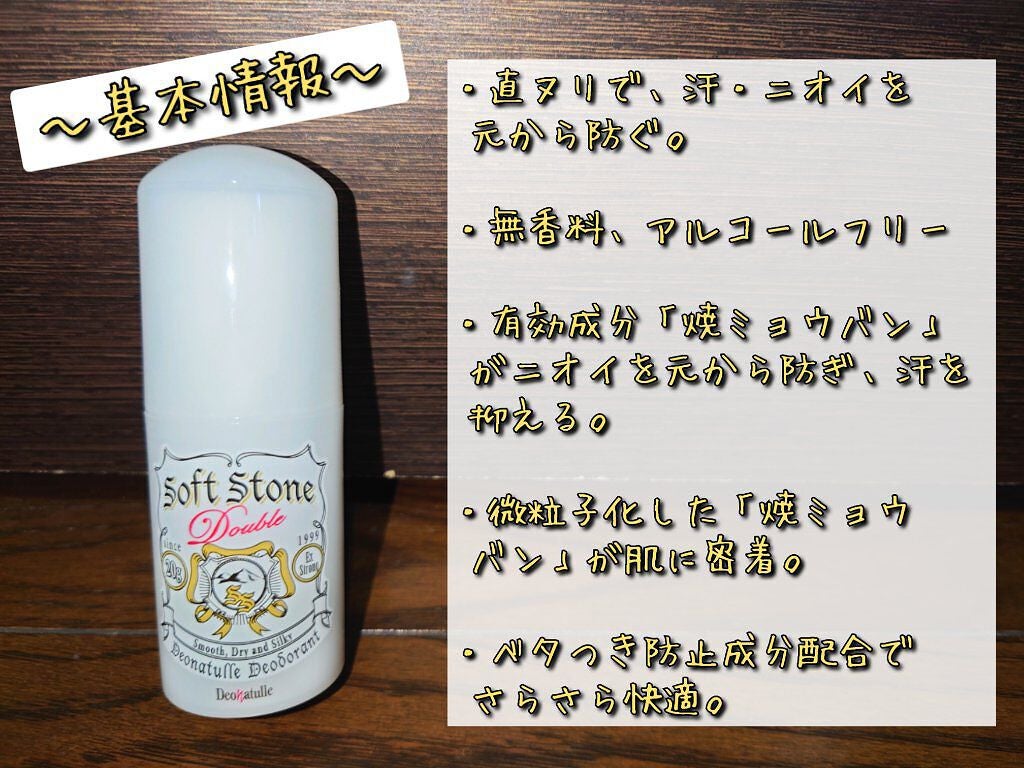 ～基本情報～
・直ヌリで、汗・ニオイを
元から防ぐ。
・無香料、アルコールフリー
・有効成分「焼ミョウバン」
がニオイを元から防ぎ、汗を
抑える。
・微粒子化した「焼ミョウ
バン」が肌に密着。
・ベタつき防止成分配合で
さらさら快適。
Soft Stone
Double
since
1999
20g
Ex
Strong
SS
Smooth, Dry and Silky
Deonatulle Deodorant
Deonatulle